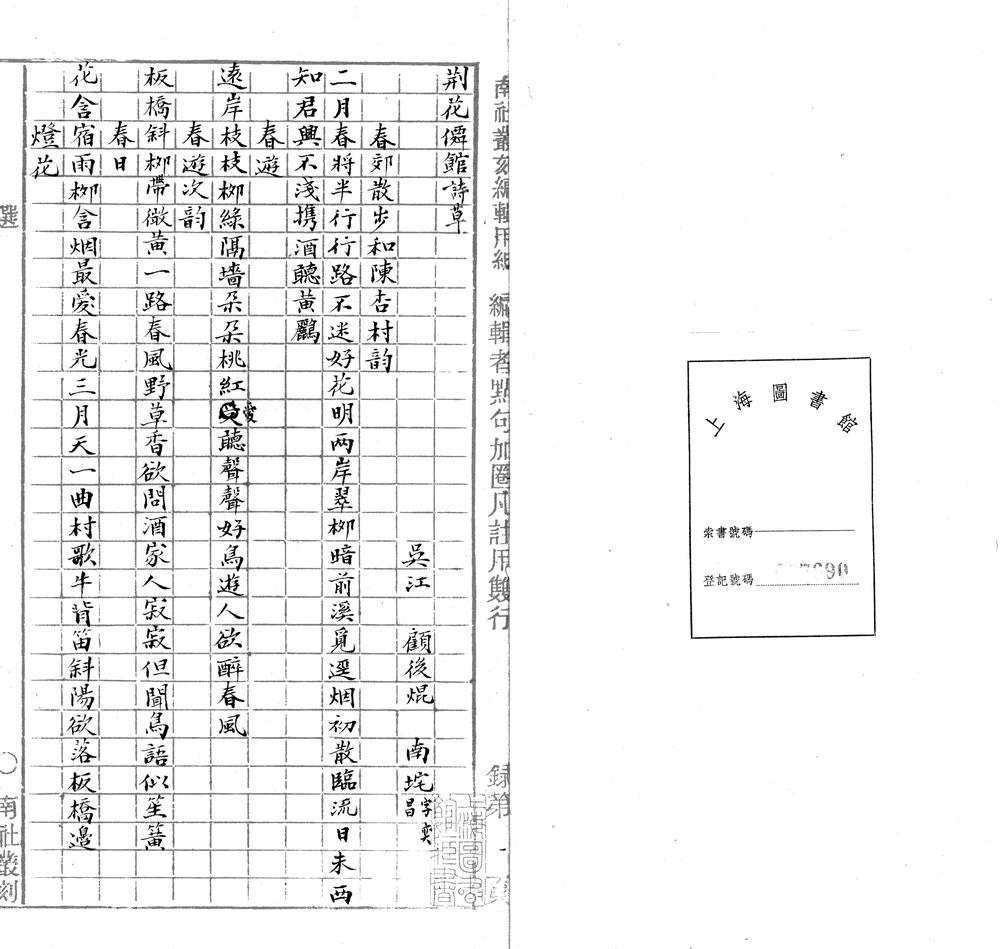 上海圖書館
索書號碼
登記號碼
南社叢刻編輯用紙 編輯者點句加圈凡註用雙行 錄第
荆花僲館詩草
吳江 顧後焜 南垞字奕昌
春郊散步和陳杏村韵
二月春將半行行路不迷好花明两岸翠栁暗前溪覓逕烟初散臨流日未西
知君興不淺携酒聽黄鸝
春遊
遠岸枝枝栁綠隔墻朵朵桃紅愛聽聲聲好鳥遊人欲醉春風
春遊次韵
板橋斜栁帶微黄一路春風野草香欲問酒家人寂寂但聞鳥語似笙簧
春日
花含宿雨栁含烟最愛春光三月天一曲村歌牛背笛斜陽欲落板橋邉
燈花
選 〇 南社叢刻